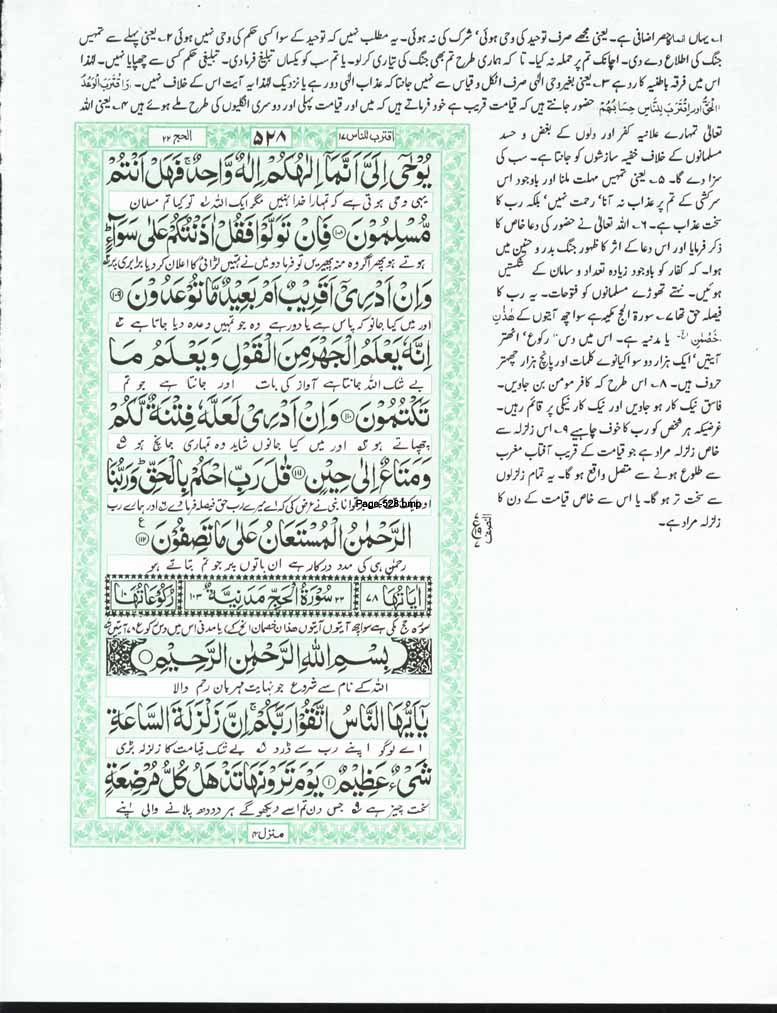 ۱۔ یہاں انما حصر اضافی ہے۔ یعنی مجھے صرف توحید کی وحی ہوئی، شرک کی نہ ہوئی۔ یہ مطلب نہیں کہ توحید کے سوا کسی حکم کی وحی نہیں ہوئی ۲۔ یعنی پہلے سے تمہیں
جنگ کی اطلاع دے دی۔ اچانک تم پر حملہ نہ کیا۔ تا کہ ہماری طرح تم بھی جنگ کی تیاری کر لو۔ یا تم سب کو یکساں تبلیغ فرما دی۔ تبلیغی حکم کسی سے چھپایا نہیں۔ لہٰذا
اس میں فرقہ باطنیہ کا رد ہے ۳۔ یعنی بغیر وحی الٰہی صرف اٹکل و قیاس سے نہیں جانتا کہ عذاب الٰہی دور ہے یا نزدیک لہٰذا یہ آیت اس کے خلاف نہیں۔ وَاقْتَرَبَ الْوَعْدُ
الْحَقُّ اور اِقْتَرَبَ لِلنَّاسِ حِسَابُهُمْ حضور جانتے ہیں کہ قیامت قریب ہے خود فرماتے ہیں کہ میں اور قیامت پہلی اور دوسری انگلیوں کی طرح ملے ہوئے ہیں ۴۔ یعنی اللہ
تعالیٰ تمہارے علانیہ کفر اور دلوں کے بغض و حسد
مسلمانوں کے خلاف خفیہ سازشوں کو جانتا ہے۔ سب کی
سزا دے گا۔ ۵۔ یعنی تمہیں مہلت ملنا اور باوجود اس
سرکشی کے تم پر عذاب نہ آنا، رحمت نہیں، بلکہ رب کا
سخت عذاب ہے۔ ۶۔ اللہ تعالیٰ نے حضور کی دعا خاص کا
ذکر فرمایا اور اس دعا کے اثر کا ظہور جنگ بدر و حنین میں
ہوا۔ کہ کفار کو باوجود زیادہ تعداد و سامان کے شکستیں
ہوئیں۔ نہتے تھوڑے مسلمانوں کو فتوحات۔ یہ رب کا
فیصلہ حق تھا ۷۔ سورۃ الحج مکیہ ہے سوا چھ آیتوں کے هٰذٰنِ
خَصْمٰنِ الخ۔ یا مدنیہ ہے۔ اس میں دس رکوع، اٹھتر
آیتیں، ایک ہزار دو سو اکیانوے کلمات اور پانچ ہزار پچھتر
حروف ہیں۔ ۸۔ اس طرح کہ کافر مومن بن جاویں۔
فاسق نیک کار ہو جاویں اور نیک کار نیکی پر قائم رہیں۔
غرضیکہ ہر شخص کو رب کا خوف چاہیے ۹۔ اس زلزلہ سے
خاص زلزلہ مراد ہے جو قیامت کے قریب آفتاب مغرب
سے طلوع ہونے سے متصل واقع ہو گا۔ یہ تمام زلزلوں
سے سخت تر ہو گا۔ یا اس سے خاص قیامت کے دن کا
زلزلہ مراد ہے۔
اقترب للناس ۱۷
۵۲۸
الحج ۲۲
يُوْحٰٓى اِلَيَّ اَنَّمَآ اِلٰهُكُمْ اِلٰهٌ وَّاحِدٌ ۚ فَهَلْ اَنْتُمْ
یہی وحی ہوتی ہے کہ تمہارا خدا نہیں مگر ایک اللہ تو کیا تم مسلمان
مُّسْلِمُوْنَ ۝۱۰۸ فَاِنْ تَوَلَّوْا فَقُلْ اٰذَنْتُكُمْ عَلٰى سَوَآءٍ ؕ
ہوتے ہو پھر اگر وہ منہ پھیریں تو فرما دو میں نے تمہیں لڑائی کا اعلان کر دیا برابری پر
وَاِنْ اَدْرِيْٓ اَقَرِيْبٌ اَمْ بَعِيْدٌ مَّا تُوْعَدُوْنَ ۝۱۰۹
اور میں کیا جانوں کہ پاس ہے یا دور ہے وہ جو تمہیں وعدہ دیا جاتا ہے
اِنَّهٗ يَعْلَمُ الْجَهْرَ مِنَ الْقَوْلِ وَيَعْلَمُ مَا
بے شک اللہ جانتا ہے آواز کی بات اور جانتا ہے جو تم
تَكْتُمُوْنَ ۝۱۱۰ وَاِنْ اَدْرِيْ لَعَلَّهٗ فِتْنَةٌ لَّكُمْ
چھپاتے ہو اور میں کیا جانوں شاید وہ تمہاری جانچ ہو
وَمَتَاعٌ اِلٰى حِيْنٍ ۝۱۱۱ قٰلَ رَبِّ احْكُمْ بِالْحَقِّ ؕ وَرَبُّنَا
نبی نے عرض کی کہ اے میرے رب حق فیصلہ فرما دے اور ہمارے رب
Page-528.bmp
الرَّحْمٰنُ الْمُسْتَعَانُ عَلٰى مَا تَصِفُوْنَ ۝۱۱۲
ع
رحمٰن ہی کی مدد درکار ہے ان باتوں پر جو تم بتاتے ہو
اٰيَاتُهَا ۷۸ ۲۲ سُوْرَةُ الْحَجِّ مَدَنِيَّةٌ ۱۰۳ رُكُوْعَاتُهَا ۱۰
سورہ حج مکی ہے سوا چھ آیتوں ھذان خصمان الخ کے یا مدنی اس میں دس رکوع ۷۸ آیتیں
بِسْمِ اللهِ الرَّحْمٰنِ الرَّحِيْمِ
اللہ کے نام سے شروع جو نہایت مہربان رحم والا
يٰٓاَيُّهَا النَّاسُ اتَّقُوْا رَبَّكُمْ ۚ اِنَّ زَلْزَلَةَ السَّاعَةِ
اے لوگو اپنے رب سے ڈرو بے شک قیامت کا زلزلہ بڑی
شَيْءٌ عَظِيْمٌ ۝۱ يَوْمَ تَرَوْنَهَا تَذْهَلُ كُلُّ مُرْضِعَةٍ
سخت چیز ہے جس دن تم اسے دیکھو گے ہر دودھ پلانے والی اپنے
منزل ۴
النصف